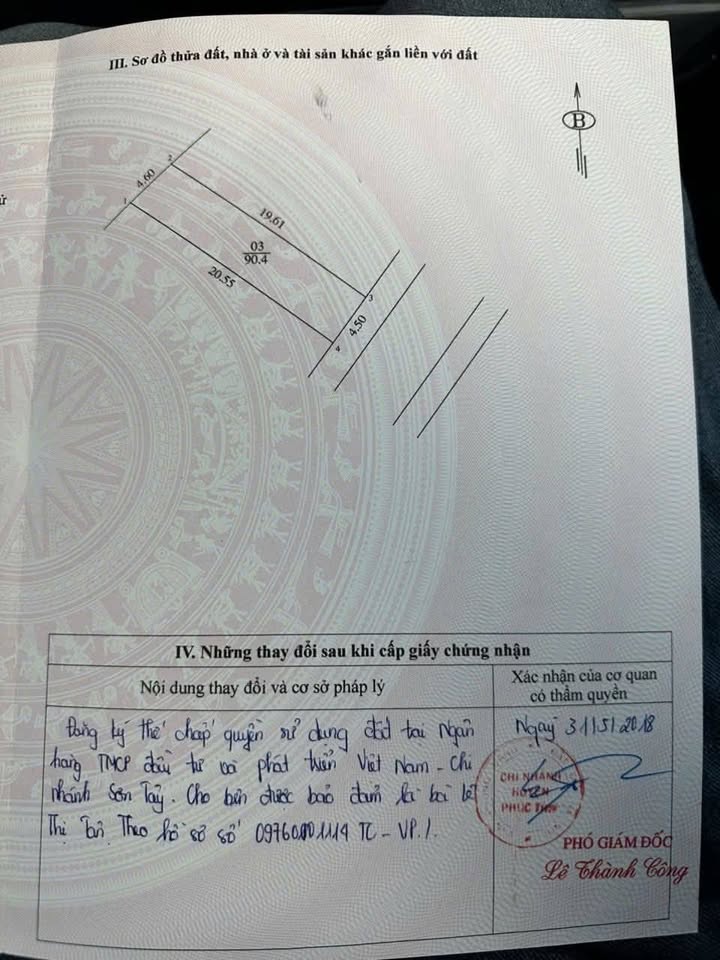 III. Sơ đồ thửa đất, nhà ở và tài sản khác gắn liền với đất
B
2
4.60
1
19.61
03
90.4
20.55
3
4.50
4
IV. Những thay đổi sau khi cấp giấy chứng nhận
Nội dung thay đổi và cơ sở pháp lý
Xác nhận của cơ quan
có thẩm quyền
Đăng ký thế chấp quyền sử dụng đất tại Ngân
hàng TMCP đầu tư và phát triển Việt Nam - Chi
nhánh Sơn Tây. Cho bên được bảo đảm là bà Lê
Thị Theo hồ sơ số 1114 TC - VP.
Ngày 31/5/2018
CHI NHÁNH
HUYỆN
PHÚC THỌ
PHÓ GIÁM ĐỐC
Lê Thành Công